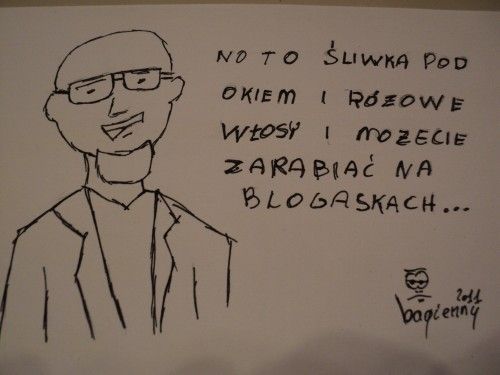 NO TO ŚLIWKA POD
OKIEM I RÓŻOWE
WŁOSY I MOŻECIE
ZARABIAĆ NA
BLOGASKACH...
2011
bagienny